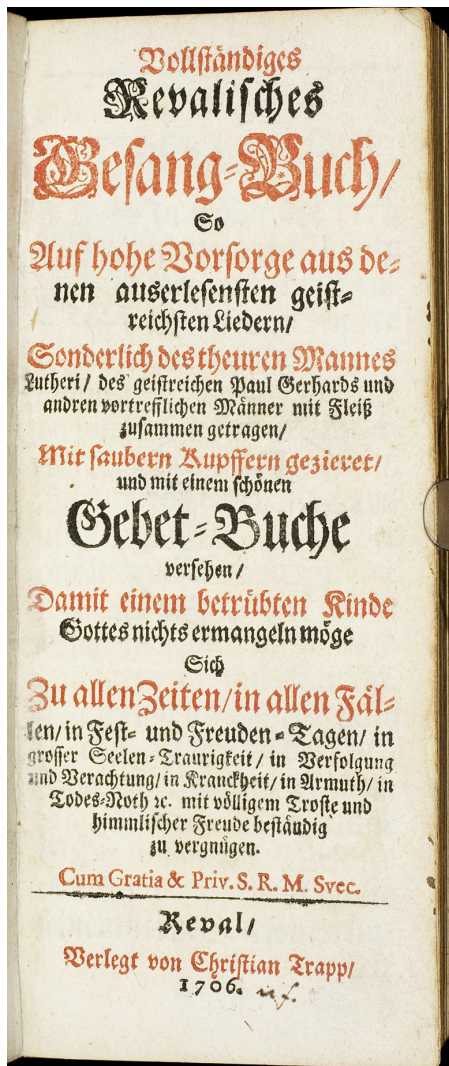 Vollständiges
Revalisches
Gesang-Buch/
So
Auf hohe Vorsorge aus de-
nen auserlesensten geist-
reichsten Liedern/
Sonderlich des theuren Mannes
Lutheri/ des geistreichen Paul Gerhards und
andren vortrefflichen Männer mit Fleiß
zusammen getragen/
Mit saubern Kupffern gezieret/
und mit einem schönen
Gebet-Buche
versehen/
Damit einem betrübten Kinde
Gottes nichts ermangeln möge
Sich
Zu allen Zeiten/ in allen Fäl-
len/ in Fest- und Freuden-Tagen/ in
grosser Seelen-Traurigkeit/ in Verfolgung
und Verachtung/ in Kranckheit/ in Armuth/ in
Todes-Noth ꝛc. mit völligem Troste und
himmlischer Freude beständig
zu vergnügen.
Cum Gratia & Priv. S. R. M. Svec.
Reval/
Verlegt von Christian Trapp/
1706.